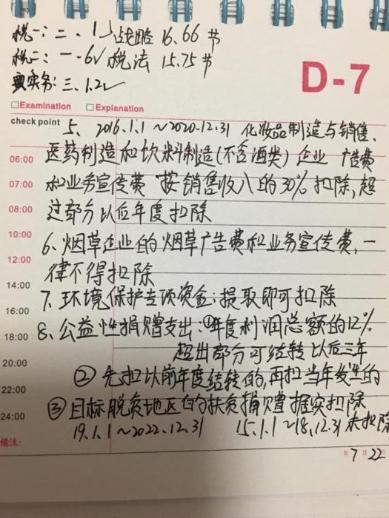 税一：二、1 战略 16.66节
税二：一~6 税法 15.75节
实务：三、1.2
D-7
Examination Explanation
check point
5、2016.1.1～2020.12.31 化妆品制造与销售、
医药制造和饮料制造(不含酒类)企业 广告费
06:00
和业务宣传费 按销售收入的30%扣除,超
07:00
过部分以后年度扣除
08:00
09:00
6、烟草企业的烟草广告费和业务宣传费,一
10:00
律不得扣除
12:00
7、环境保护专项资金:提取即可扣除
14:00
8、公益性捐赠支出:①年度利润总额的12%
16:00
超出部分可结转以后三年
18:00
②先扣以前年度结转的,再扣当年发生的
20:00
22:00
③目标脱贫地区的扶贫捐赠据实扣除
24:00
19.1.1～2022.12.31 15.1.1～18.12.31未扣除
备注:
7月22